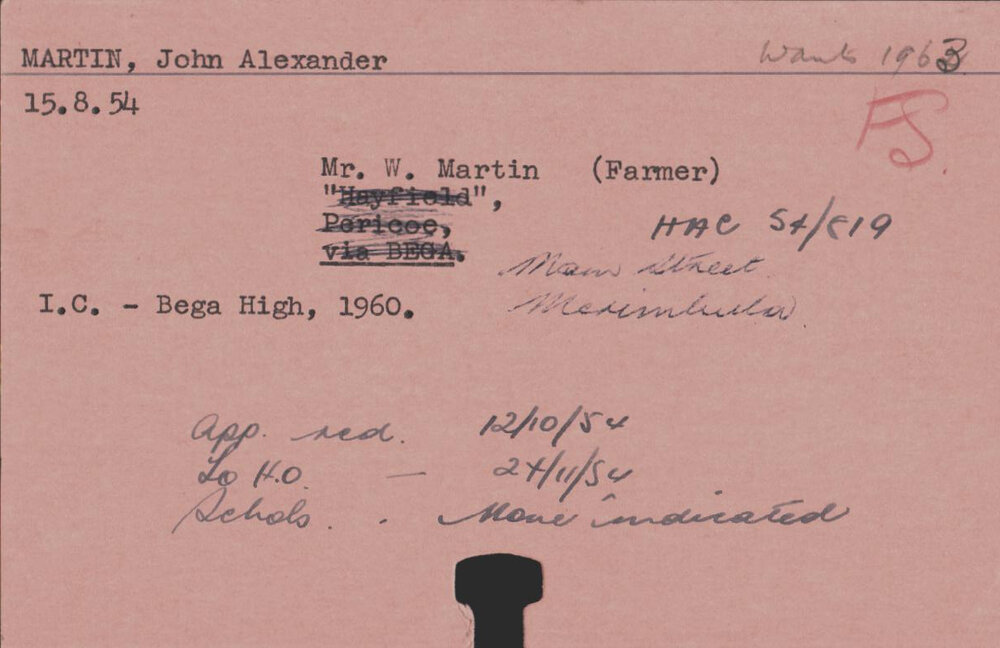 MARTIN, John Alexander
Wants 1963
15.8.54
FS
Mr. W. Martin (Farmer)
"Hayfield",
Pericoe,
via BEGA.
HAC 54/819
Main Street
Merimbula
I.C. - Bega High, 1960.
App. red. 12/10/54
To H.O. — 24/11/54
Schols. . None indicated